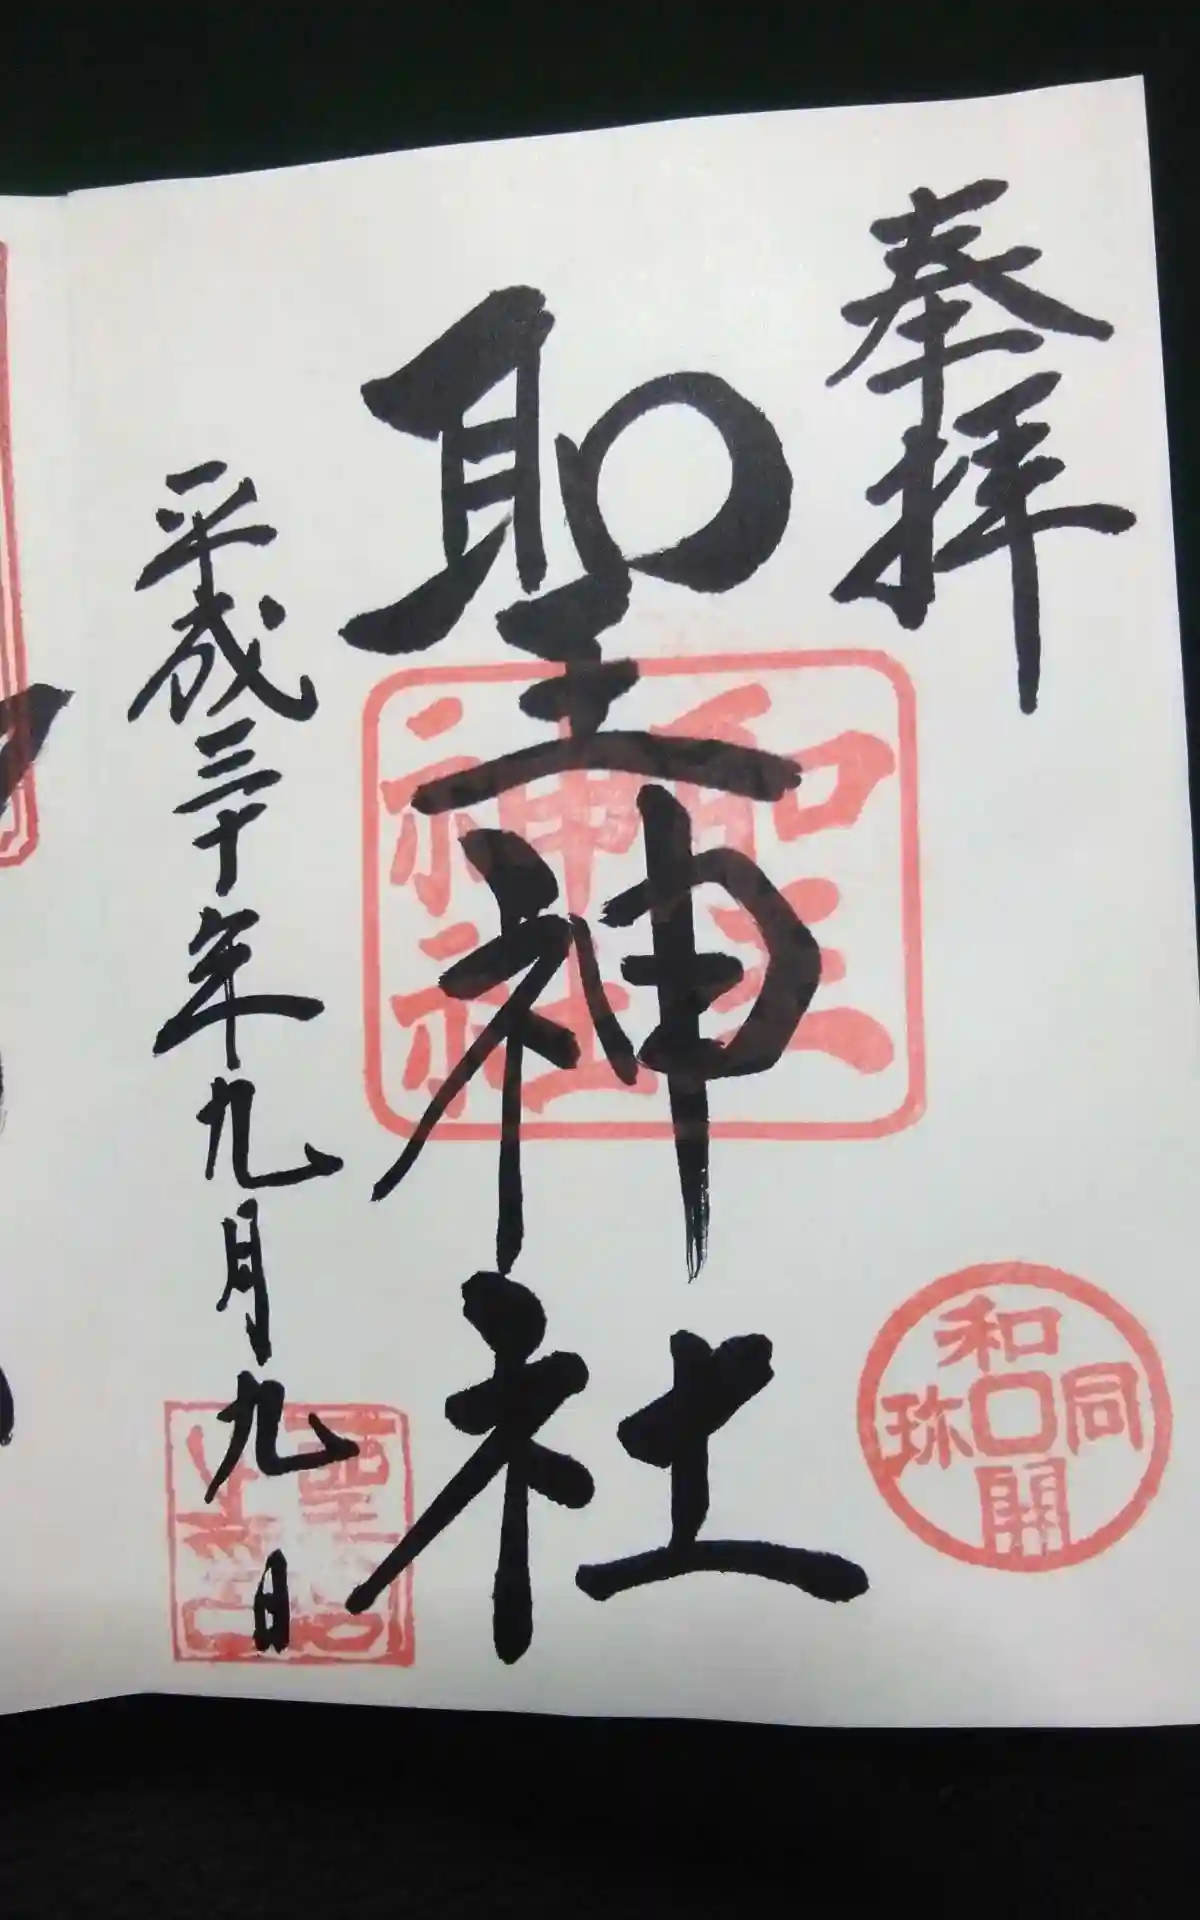 奉拝
聖神社
聖神社
和同開珎
平成三十年九月九日